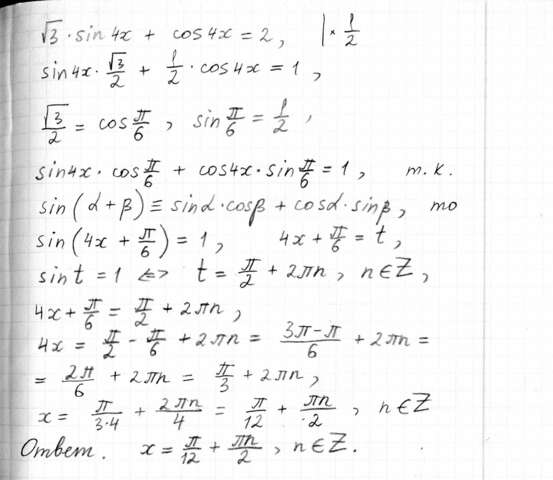 √3 · sin 4x + cos 4x = 2, | × 1/2
sin 4x · √3/2 + 1/2 · cos 4x = 1,
√3/2 = cos π/6, sin π/6 = 1/2,
sin 4x · cos π/6 + cos 4x · sin π/6 = 1, т.к.
sin(α + β) ≡ sin α · cos β + cos α · sin β, то
sin(4x + π/6) = 1, 4x + π/6 = t,
sin t = 1 ⇔ t = π/2 + 2πn, n ∈ Z,
4x + π/6 = π/2 + 2πn,
4x = π/2 − π/6 + 2πn = (3π − π)/6 + 2πn =
= 2π/6 + 2πn = π/3 + 2πn,
x = π/(3·4) + 2πn/4 = π/12 + πn/2, n ∈ Z
Ответ. x = π/12 + πn/2, n ∈ Z.